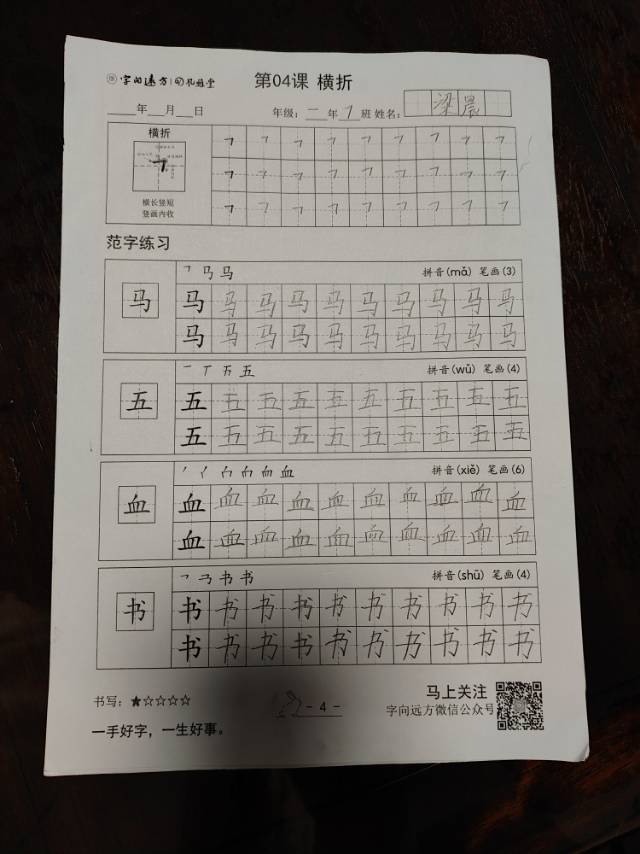 字向远方 | 礼朝堂
第04课 横折
____年__月__日 年级：二年1班 姓名：梁晨
横折
横长竖短
竖画内收
范字练习
马 拼音(mǎ) 笔画(3)
马 马 马 马 马 马 马 马 马 马 马
马 马 马 马 马 马 马 马 马 马
五 拼音(wǔ) 笔画(4)
五 五 五 五 五 五 五 五 五 五 五
五 五 五 五 五 五 五 五 五 五
血 拼音(xiě) 笔画(6)
血 血 血 血 血 血 血 血 血 血 血
血 血 血 血 血 血 血 血 血 血
书 书 拼音(shū) 笔画(4)
书 书 书 书 书 书 书 书 书 书 书
书 书 书 书 书 书 书 书 书 书
书写：★☆☆☆☆
- 4 -
马上关注
字向远方微信公众号
一手好字，一生好事。